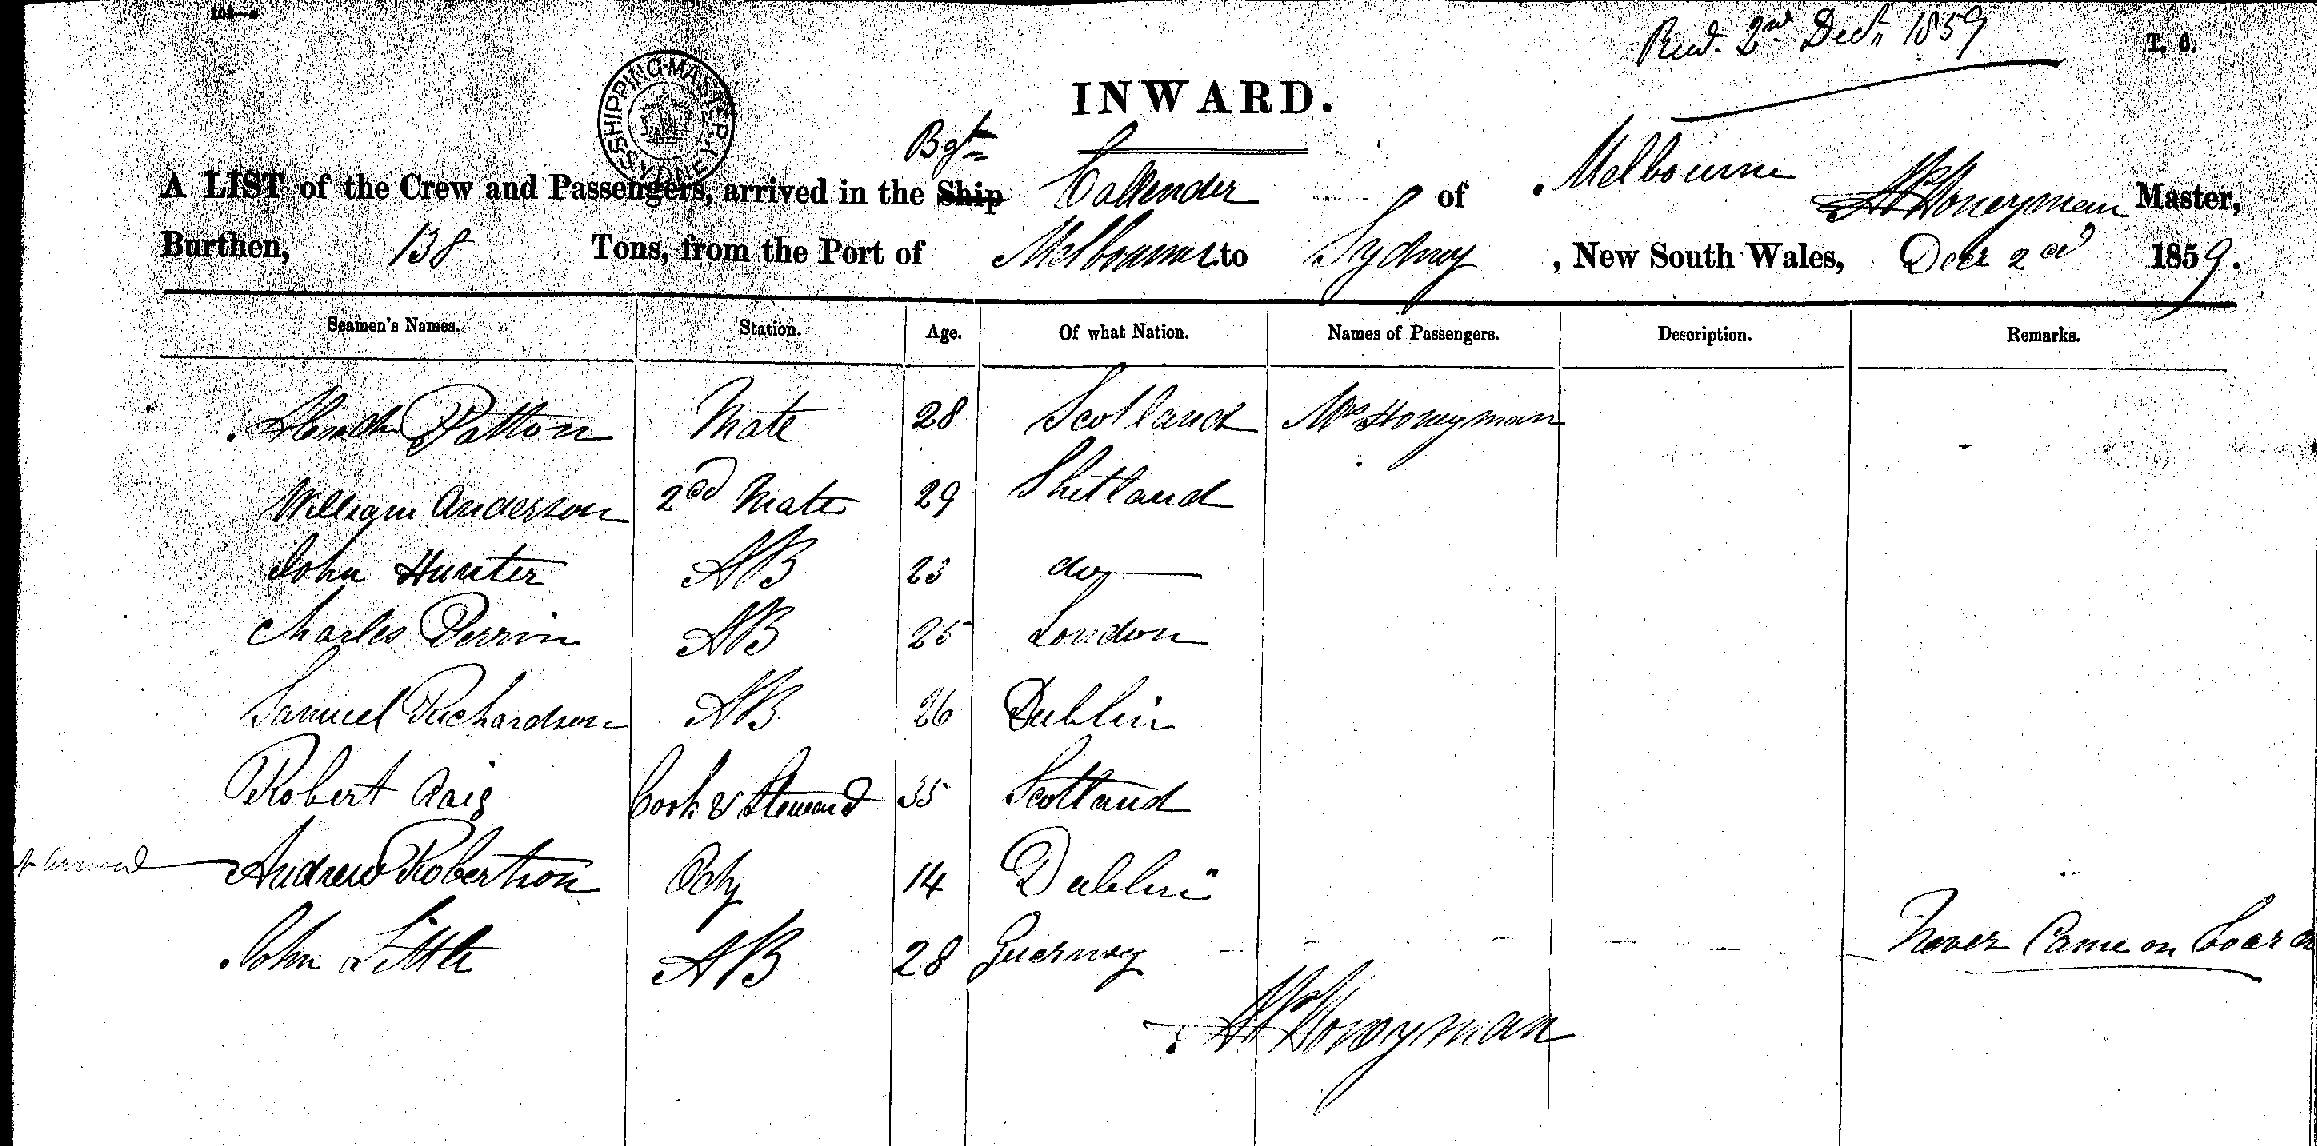 Recd. 2nd Decr. 1859
T. 6.
SHIPPING MASTER
INWARD.
Bgtn
A LIST of the Crew and Passengers, arrived in the Ship Callender of Melbourne Honeyman Master,
Burthen, 138 Tons, from the Port of Melbourne to Sydney, New South Wales, Decr 2nd 1859.
Seamen's Names. Station. Age. Of what Nation. Names of Passengers. Description. Remarks.
Patton Mate 28 Scotland Mrs Honeyman
William Anderson 2nd Mate 29 Shetland
John Hunter AB 23 do
Charles Perrin AB 25 London
Samuel Richardson AB 26 Dublin
Robert Cook & Steward 35 Scotland
Andrew Robertson 14 Dublin
John Little AB 28 Guernsey Never Came on board
Honeyman